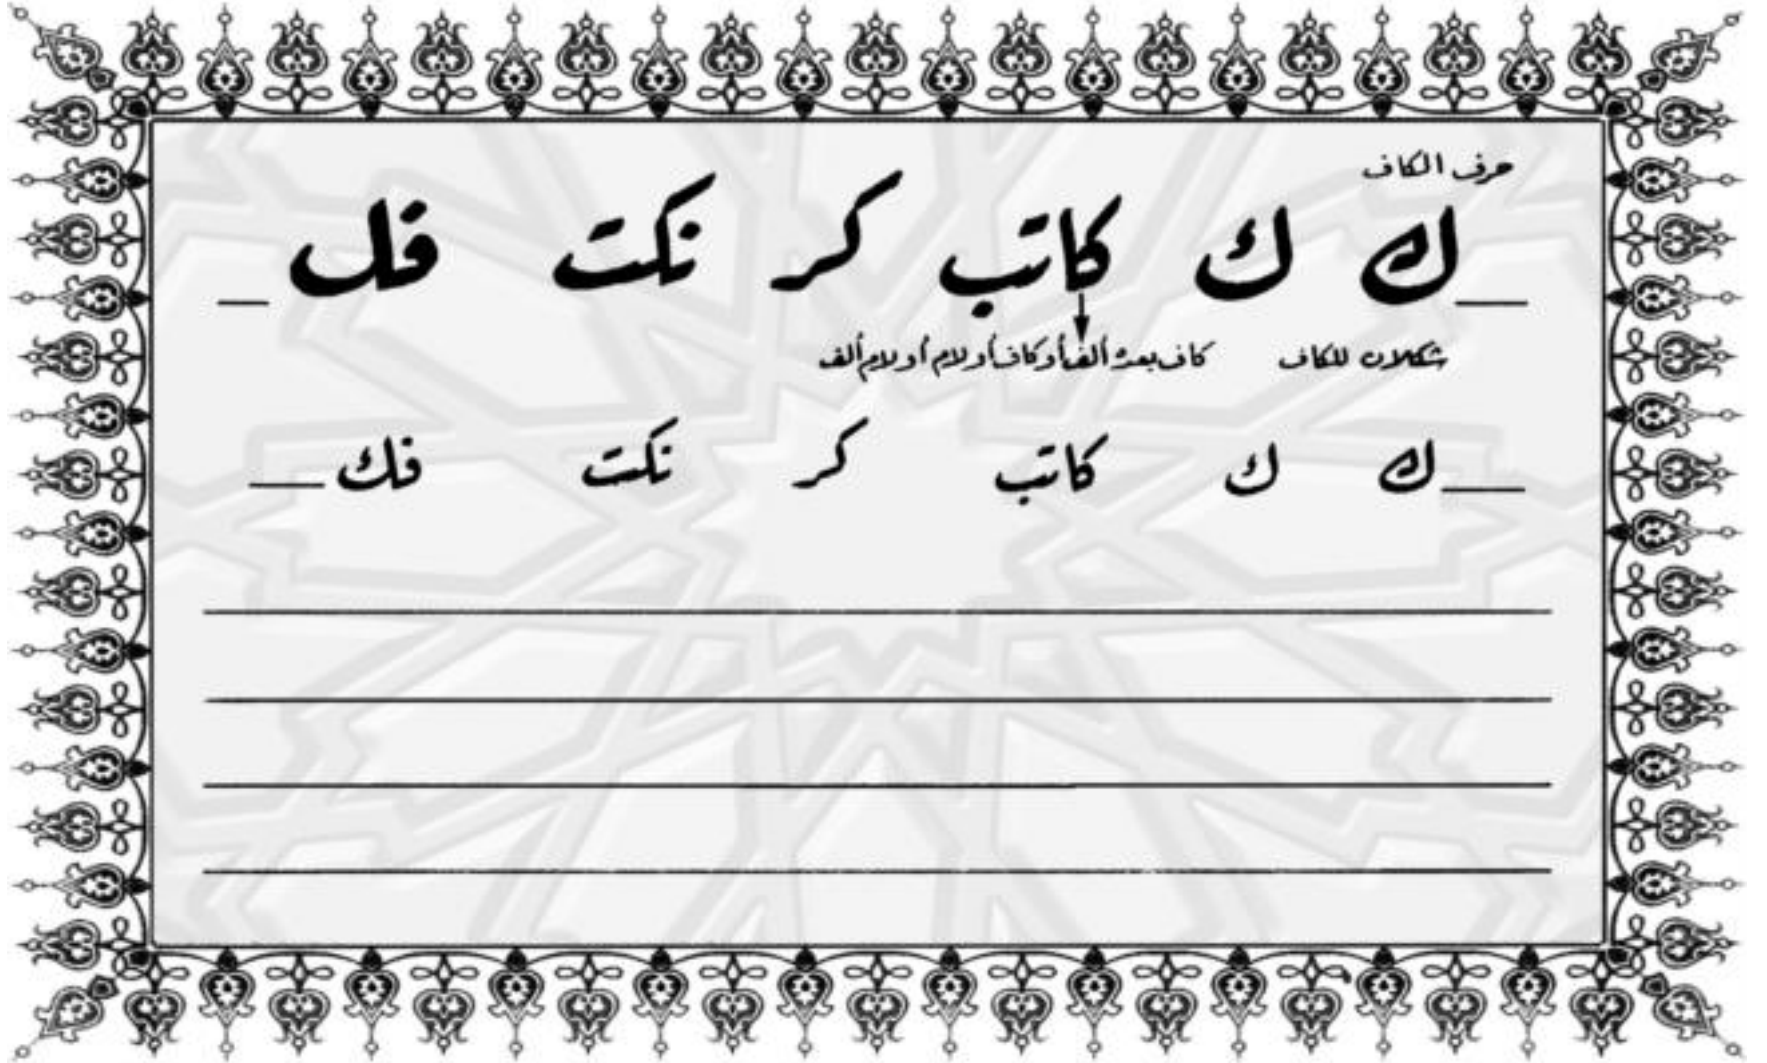 حرف الكاف
ك ك كاتب كر نكت فك
شكلان للكاف كاف بعده ألف أو كاف أو لام أو لام ألف
ك ك كاتب كر نكت فك